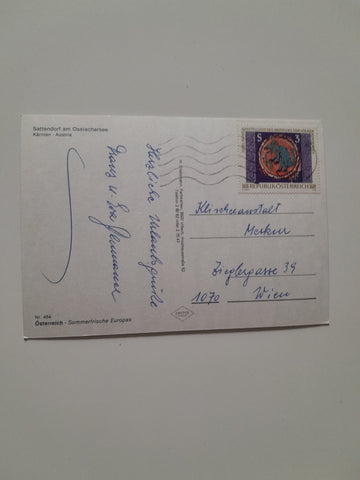 Sattendorf am Ossiachersee
Kärnten - Austria
Herzliche Urlaubsgrüße
Franz u.
Nr. 464
Österreich - Sommerfrische Europas
S 3
REPUBLIK ÖSTERREICH
Klischeeanstalt
Merkur
Zieglergasse 34
1070 Wien